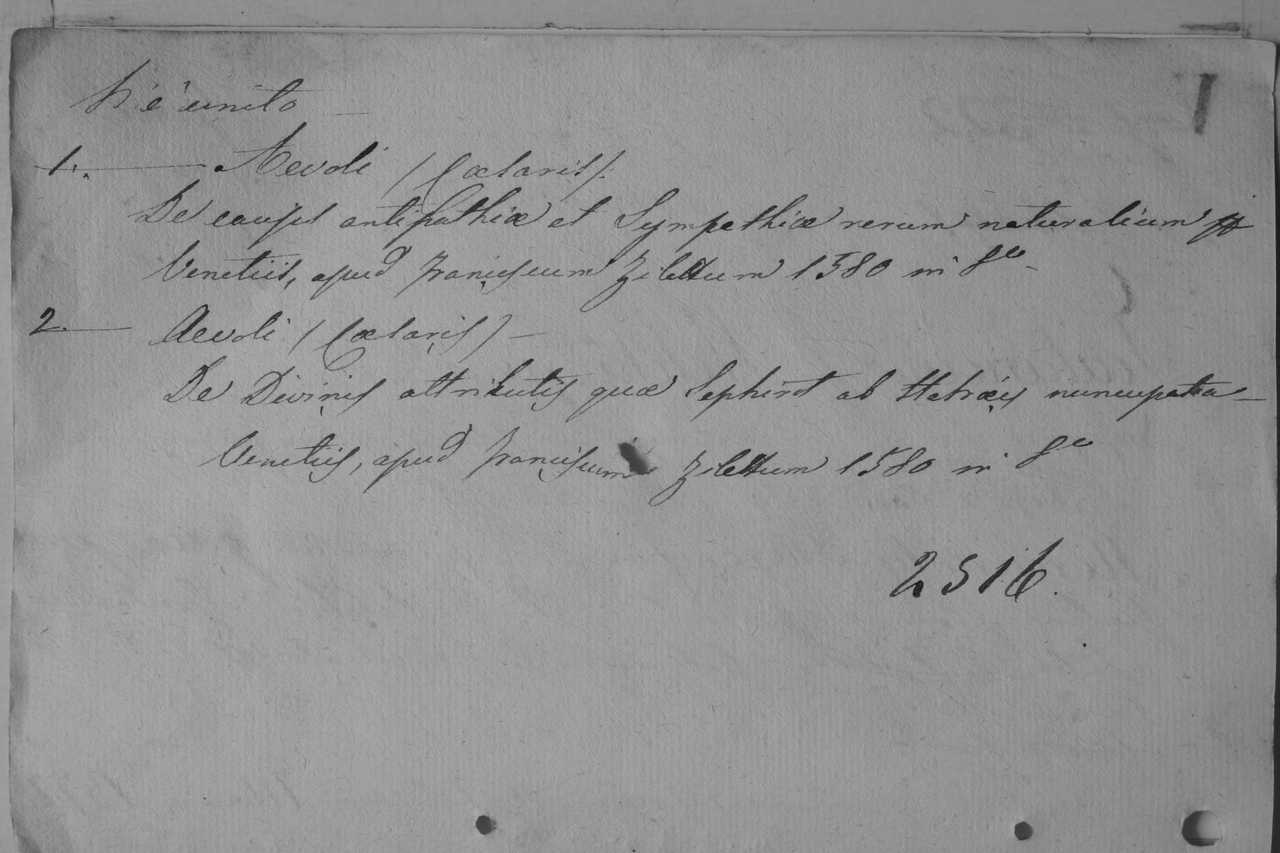 Vi è unito
1. Aevoli (Cæsaris).
De causis antipathiæ et Sympathiæ rerum naturalium
Venetiis, apud Franciscum Zilettum 1580 in 8º
2. Aevoli (Cæsaris)
De Divinis attributis quæ Sephirot ab Hebræis nuncupata
Venetiis, apud Franciscum Zilettum 1580 in 8º
2516.